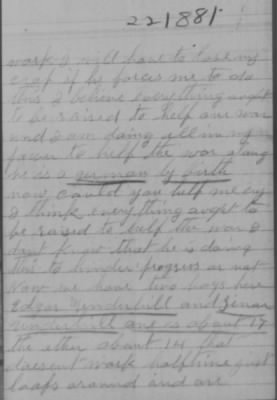 221881
work I will have to lose my
crop if he forces me to do
this I believe everything aught
to be raised to help our war
and I am doing all in my
power to help the war along
he is a german by birth
now could you help me any
I think everything aught to
be raised to help the war I
dont forget that he is doing
this to hinder progress or not
Now we have two boys here
Edgar Underhill and
Underhill one is about 17
the other about 14 that
doesent work half time just
loafs around and are